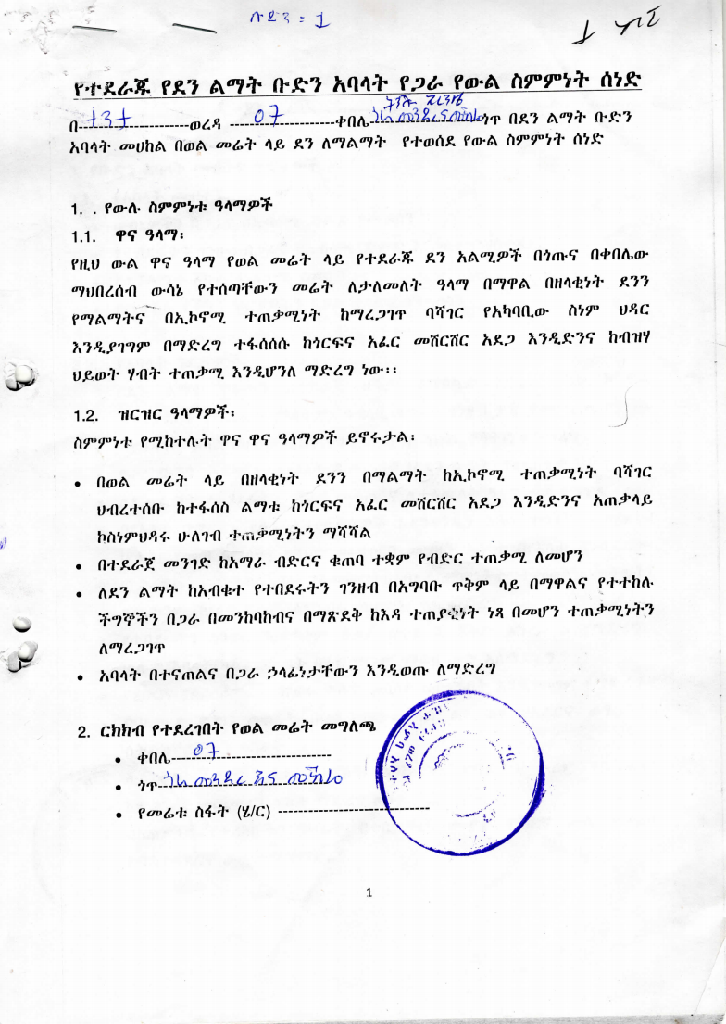 ቡድን = 1
የተደራጁ የደን ልማት ቡድን አባላት የጋራ የውል ስምምነት ሰነድ
በ---ወረዳ ---07---ቀበሌ---ጎጥ በደን ልማት ቡድን
አባላት መሀከል በወል መሬት ላይ ደን ለማልማት የተወሰደ የውል ስምምነት ሰነድ
1. . የውሉ ስምምነቱ ዓላማዎች
1.1. ዋና ዓላማ፡
የዚህ ውል ዋና ዓላማ የወል መሬት ላይ የተደራጁ ደን አልሚዎች በጎጡና በቀበሌው
ማህበረሰብ ውሳኔ የተሰጣቸውን መሬት ለታለመለት ዓላማ በማዋል በዘላቂነት ደንን
የማልማትና በኢኮኖሚ ተጠቃሚነት ከማረጋገጥ ባሻገር የአካባቢው ስነም ህዳር
እንዲያገግም በማድረግ ተፋሰሱ ከጎርፍና አፈር መሸርሸር አደጋ እንዲድንና ከብዝሃ
ህይወት ሃብት ተጠቃሚ እንዲሆንለ ማድረግ ነው፡፡
1.2. ዝርዝር ዓላማዎች፡
ስምምነቱ የሚከተሉት ዋና ዋና ዓላማዎች ይኖሩታል፡
• በወል መሬት ላይ በዘላቂነት ደንን በማልማት ከኢኮኖሚ ተጠቃሚነት ባሻገር
ህብረተሰቡ ከተፋሰስ ልማቱ ከጎርፍና አፈር መሸርሸር አደጋ እንዲድንና አጠቃላይ
ከስነምህዳሩ ሁለገብ ተጠቃሚነትን ማሻሻል
• በተደራጀ መንገድ ከአማራ ብድርና ቁጠባ ተቋም የብድር ተጠቃሚ ለመሆን
• ለደን ልማት ከአብቁተ የተበደሩትን ገንዘብ በአግባቡ ጥቅም ላይ በማዋልና የተተከሉ
ችግኞችን በጋራ በመንከባከብና በማጽደቅ ከእዳ ተጠያቂነት ነጻ በመሆን ተጠቃሚነትን
ለማረጋገጥ
• አባላት በተናጠልና በጋራ ኃላፊነታቸውን እንዲወጡ ለማድረግ
2. ርክክብ የተደረገበት የወል መሬት መግለጫ
• ቀበሌ---07---
• ጎጥ---
• የመሬቱ ስፋት (ሄ/ር) ---
1